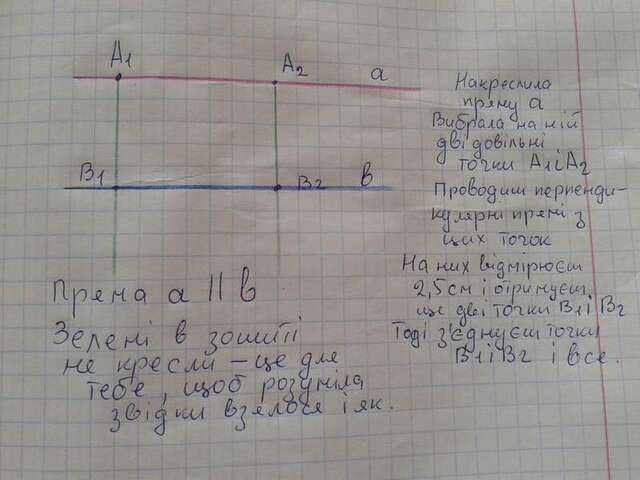 A1
A2
a
B1
B2
в
Накреслила
пряму а
Вибрала на ній
дві довільні
точки A1 і A2
Проводиш перпенди-
кулярні прямі з
цих точок
На них відмірюєш
2,5 см і отримуєш
ще дві точки B1 і B2
Тоді з'єднуєш точки
B1 і B2 і все.
Пряма а || в
Зелені в зошиті
не кресли – це для
тебе, щоб розуміла
звідки взялося і як.